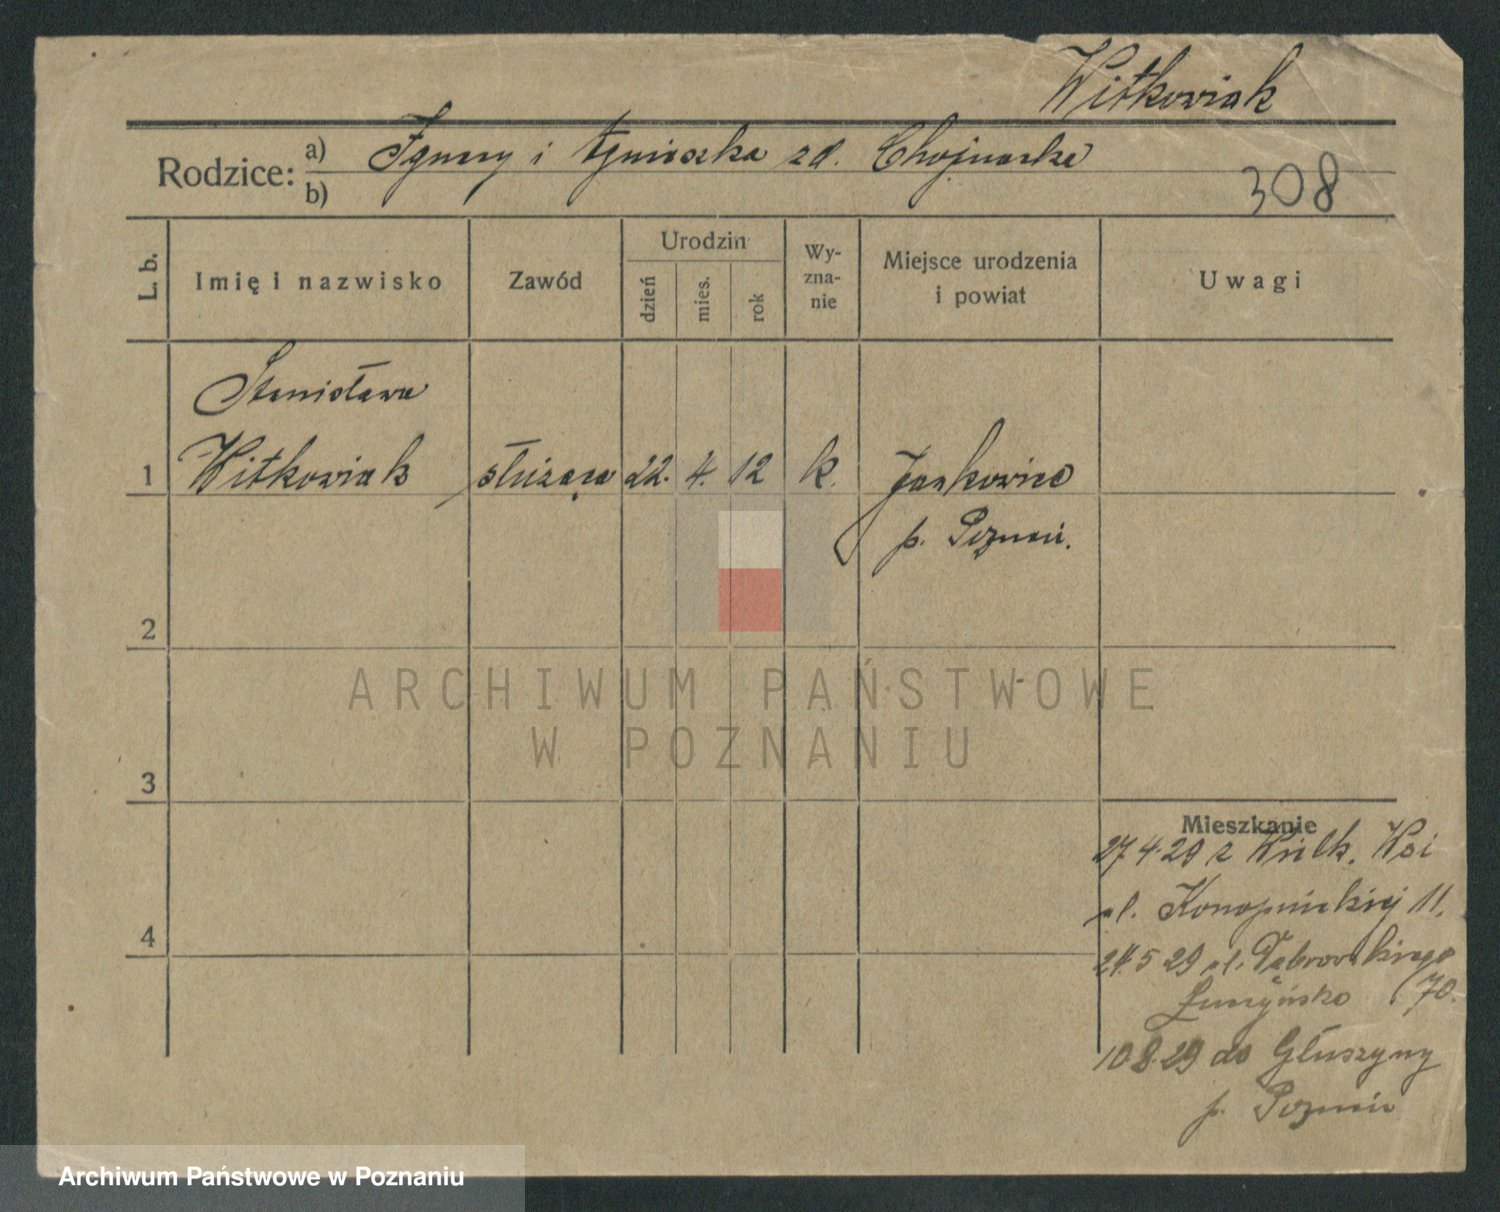 Witkowiak
Rodzice: a) Ignacy i Agnieszka zd. Chojnacka
b)
308
L. b.
Imię i nazwisko
Zawód
Urodzin
dzień
mies.
rok
Wy-
zna-
nie
Miejsce urodzenia
i powiat
Uwagi
Stanisława
1 Witkowiak służąca 22. 4. 12 k. Jankowice
p. Poznań.
2
ARCHIWUM PAŃSTWOWE
W POZNANIU
3
Mieszkanie
27.4.29 z Wielk. Wsi
ul. Konopnickiej 11.
4
24.5 29 ul. Dąbrowskiego
70.
10.8.29 do Głuszyny
p. Poznań
Archiwum Państwowe w Poznaniu